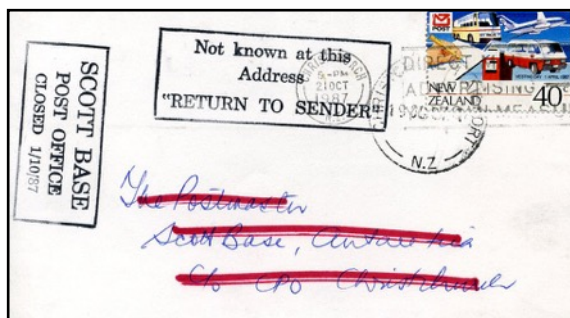 SCOTT BASE
POST OFFICE
CLOSED 1/10/87
Not known at this
Address
"RETURN TO SENDER"
CHRISTCHURCH
5 - PM
21 OCT
1987
POST
DIRECT
NEW
ZEALAND
40
N.Z
The Postmaster
Scott Base, Antarctica
c/o CPO Christchurch